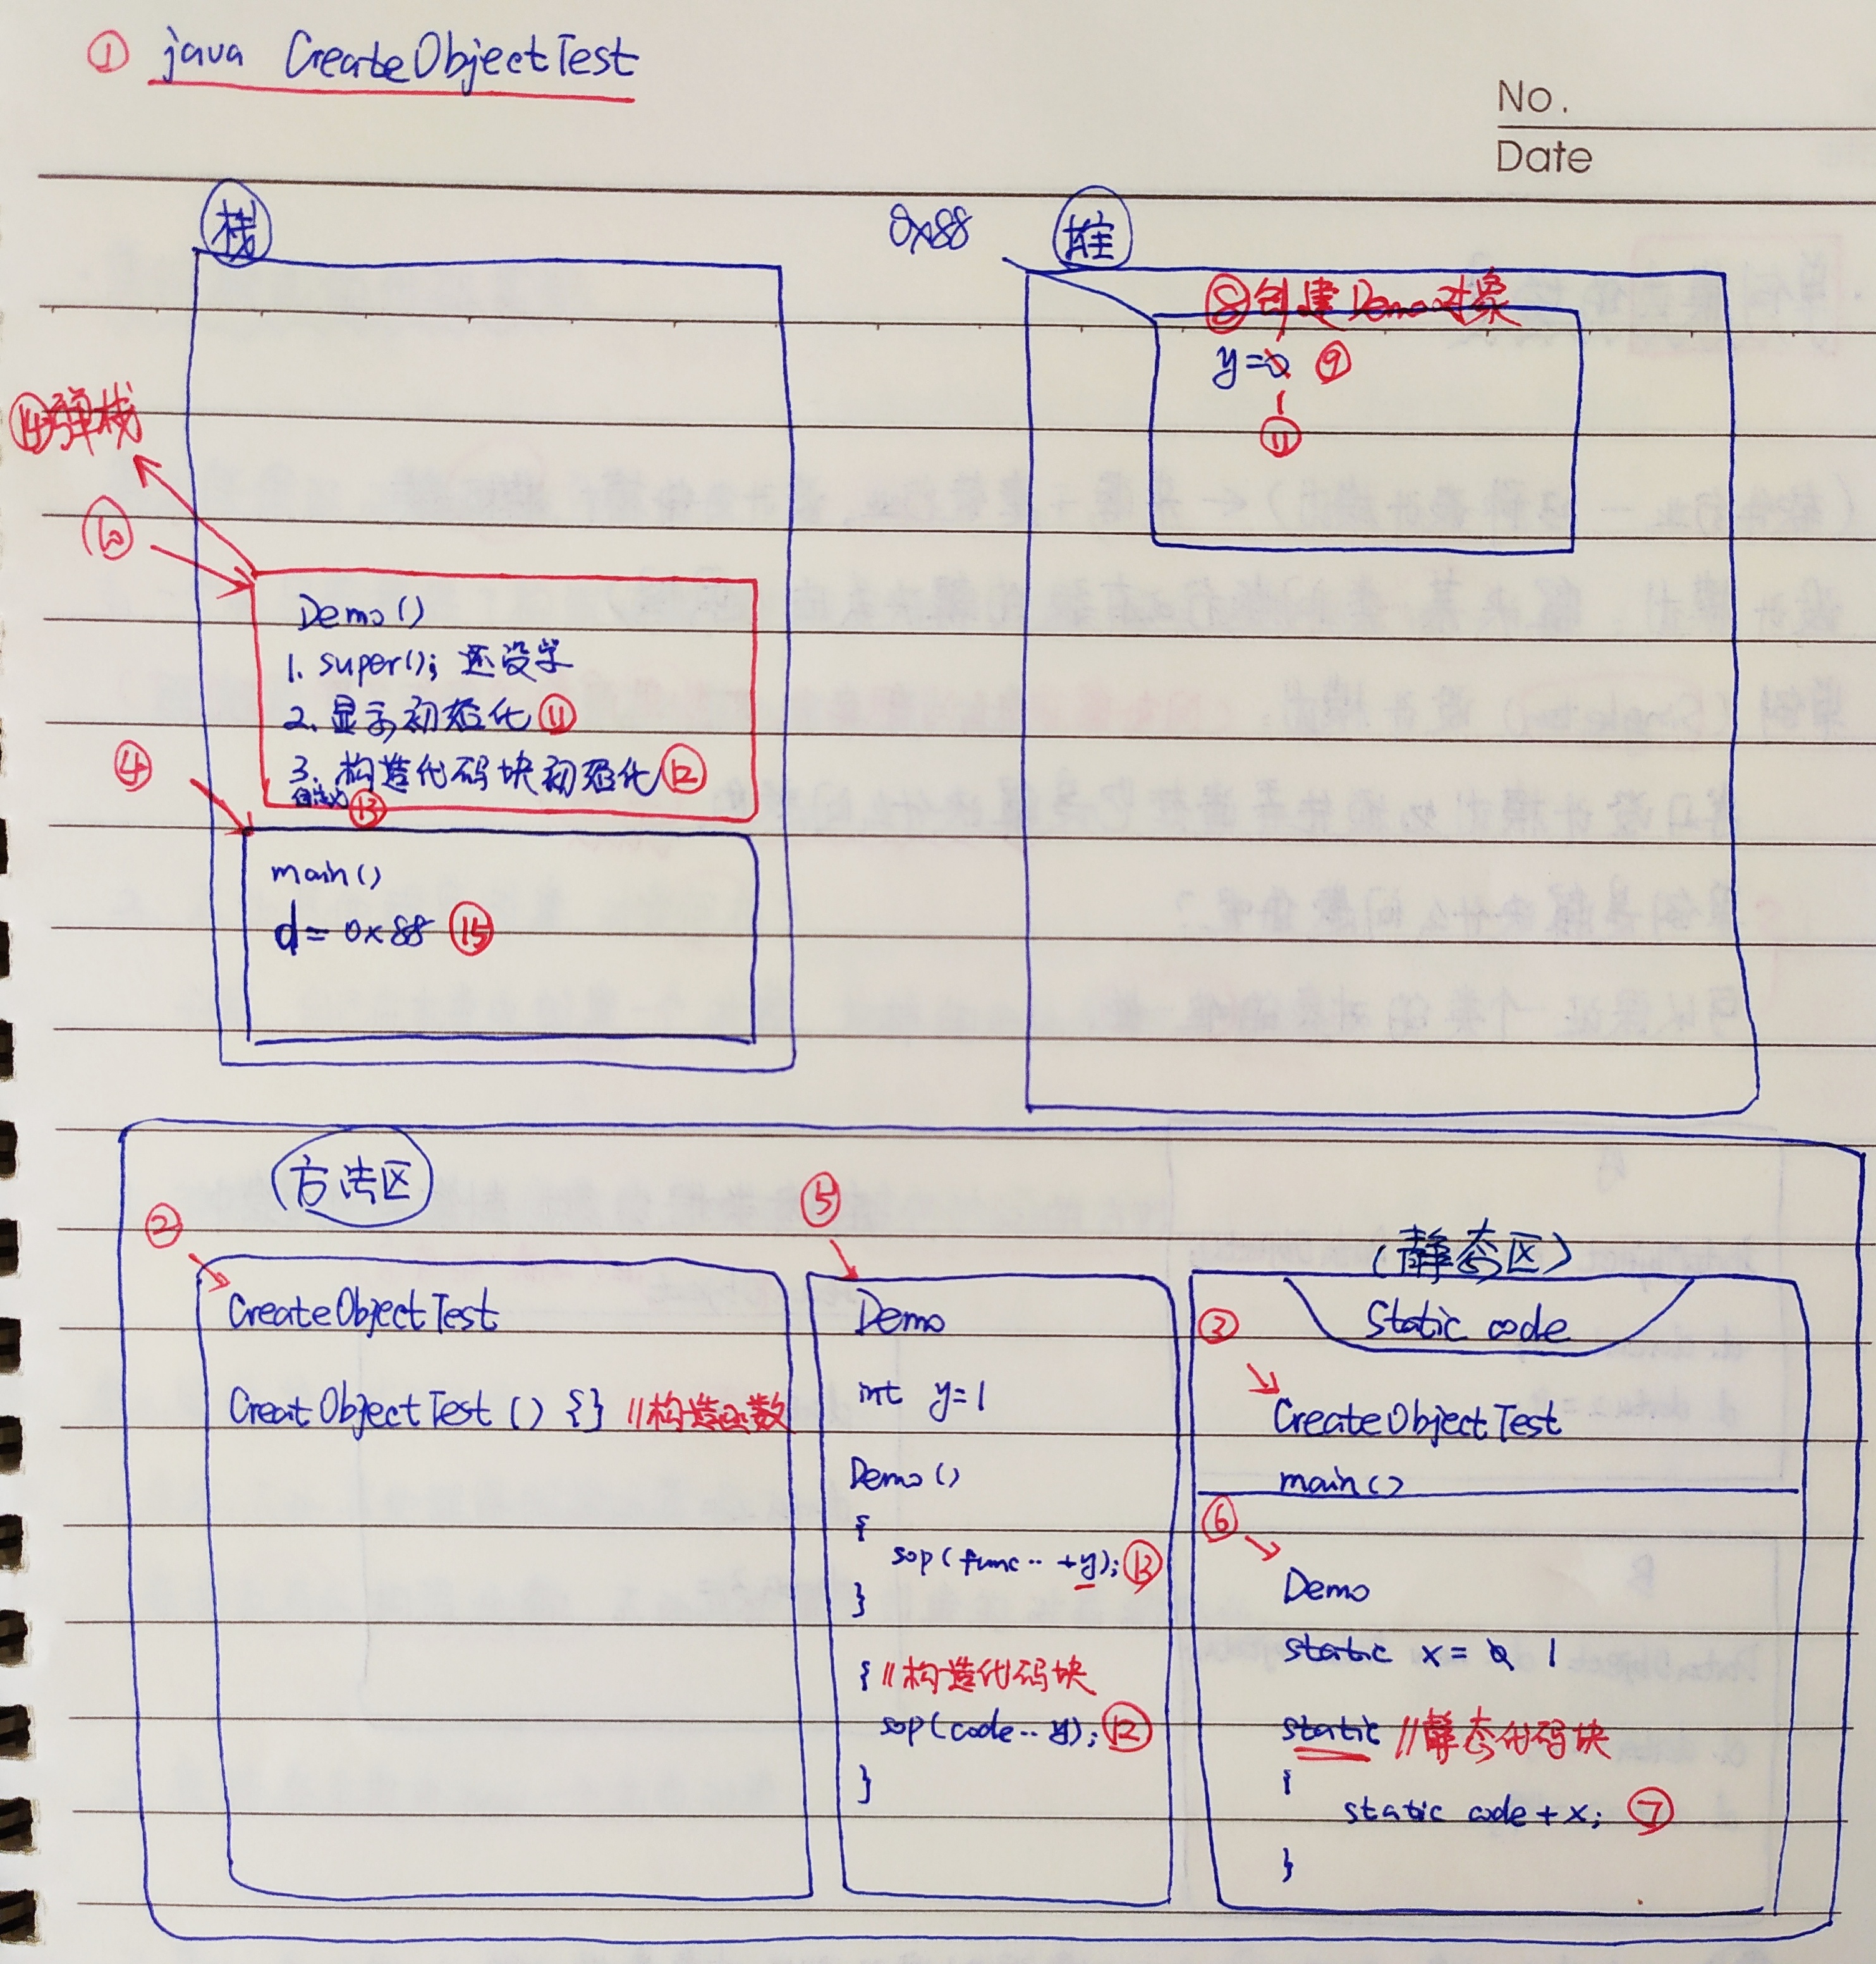 ① java CreateObjectTest
No.
Date
栈
0x88
堆
⑧创建Demo对象
y=0 ⑨
1
⑪
⑭弹栈
⑩
Demo()
1. super(); 还没学
2. 显示初始化⑪
3. 构造代码块初始化⑫
自定义⑬
④
main()
d= 0x88 ⑮
方法区
②
CreateObjectTest
CreatObjectTest () {} //构造函数
⑤
Demo
int y=1
Demo()
{
sop(func.. +y);⑬
}
{ //构造代码块
sop(code.. y);⑫
}
(静态区)
Static code
③
CreateObjectTest
main()
⑥
Demo
static x = 0 1
static //静态代码块
{
static code + x; ⑦
}